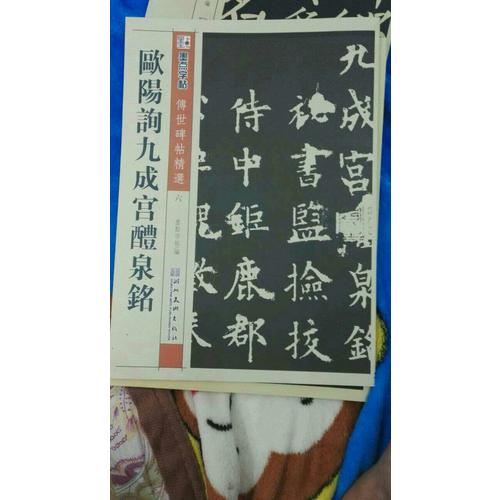 歐陽詢九成宮醴泉銘
墨点字帖
傳世碑帖精選
六
墨點字帖 編
湖北美術出版社
九成宮醴泉銘
秘書監撿挍
侍中鉅鹿郡